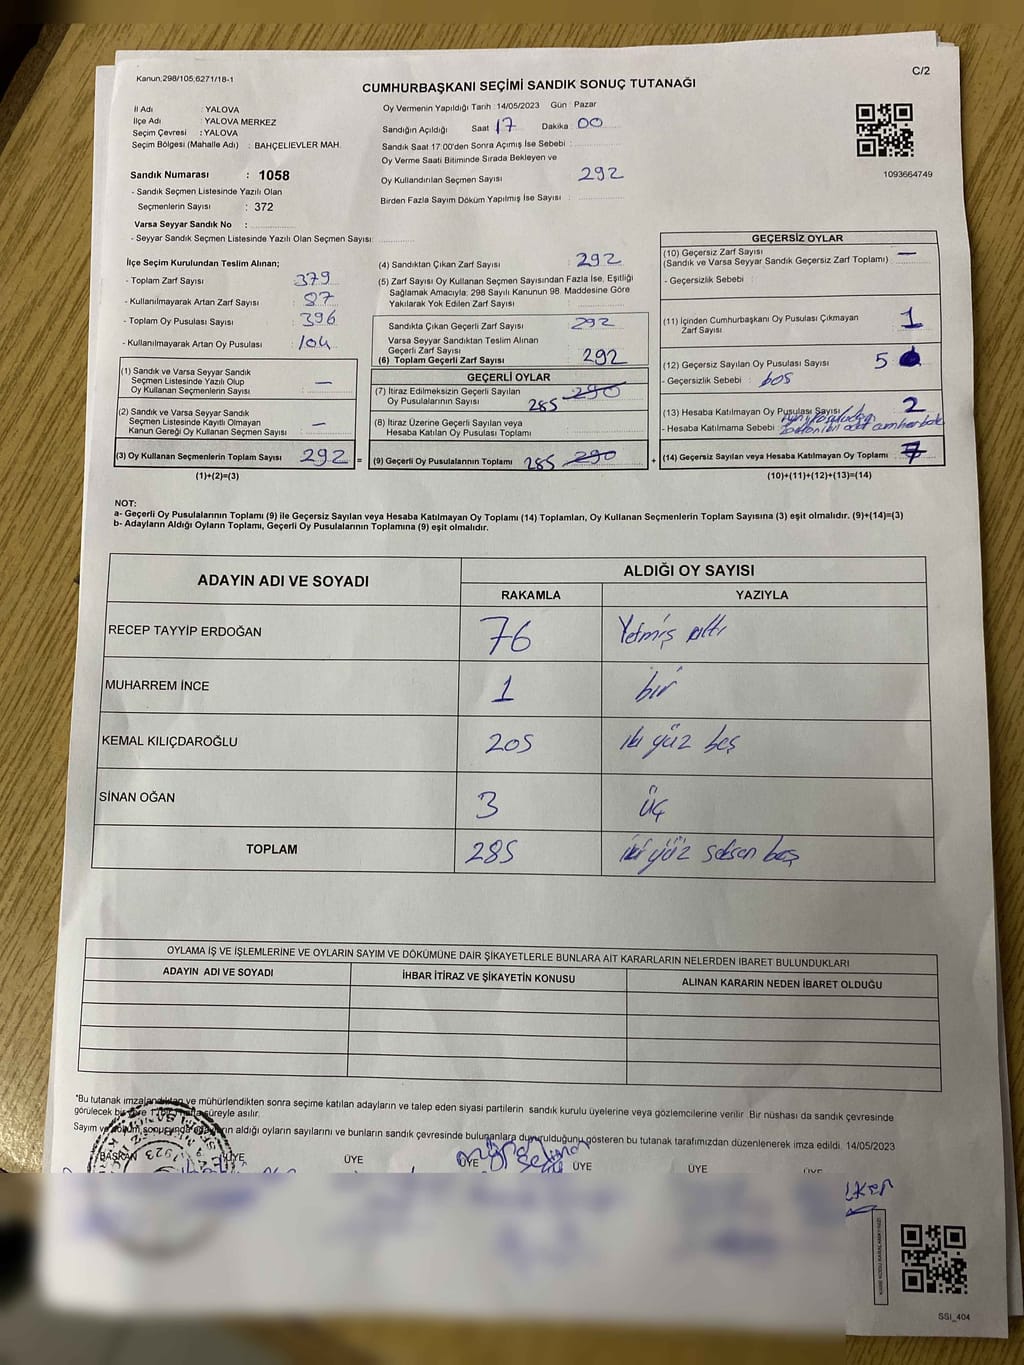 Kanun,298/105,6271/18-1
C/2
CUMHURBAŞKANI SEÇİMİ SANDIK SONUÇ TUTANAĞI
İl Adı : YALOVA
İlçe Adı : YALOVA MERKEZ
Seçim Çevresi : YALOVA
Seçim Bölgesi (Mahalle Adı) : BAHÇELİEVLER MAH.
Sandık Numarası : 1058
- Sandık Seçmen Listesinde Yazılı Olan
Seçmenlerin Sayısı : 372
Varsa Seyyar Sandık No :
- Seyyar Sandık Seçmen Listesinde Yazılı Olan Seçmen Sayısı:
Oy Vermenin Yapıldığı Tarih :14/05/2023 Gün : Pazar
Sandığın Açıldığı Saat 17 Dakika 00
Sandık Saat 17:00'den Sonra Açımış İse Sebebi :
Oy Verme Saati Bitiminde Sırada Bekleyen ve
Oy Kullandırılan Seçmen Sayısı 292
Birden Fazla Sayım Döküm Yapılmış İse Sayısı :
1093664749
İlçe Seçim Kurulundan Teslim Alınan;
- Toplam Zarf Sayısı 379
- Kullanılmayarak Artan Zarf Sayısı : 87
- Toplam Oy Pusulası Sayısı : 396
- Kullanılmayarak Artan Oy Pusulası : 104
(1) Sandık ve Varsa Seyyar Sandık
Seçmen Listesinde Yazılı Olup
Oy Kullanan Seçmenlerin Sayısı —
(2) Sandık ve Varsa Seyyar Sandık
Seçmen Listesinde Kayıtlı Olmayan
Kanun Gereği Oy Kullanan Seçmen Sayısı —
(3) Oy Kullanan Seçmenlerin Toplam Sayısı 292 =
(1)+(2)=(3)
(4) Sandıktan Çıkan Zarf Sayısı 292
(5) Zarf Sayısı Oy Kullanan Seçmen Sayısından Fazla İse, Eşitliği
Sağlamak Amacıyla; 298 Sayılı Kanunun 98. Maddesine Göre
Yakılarak Yok Edilen Zarf Sayısı :
Sandıkta Çıkan Geçerli Zarf Sayısı 292
Varsa Seyyar Sandıktan Teslim Alınan
Geçerli Zarf Sayısı
(6) Toplam Geçerli Zarf Sayısı 292
GEÇERLİ OYLAR
(7) İtiraz Edilmeksizin Geçerli Sayılan
Oy Pusulalarının Sayısı 285 290
(8) İtiraz Üzerine Geçerli Sayılan veya
Hesaba Katılan Oy Pusulası Toplamı
(9) Geçerli Oy Pusulalarının Toplamı 285 290 +
GEÇERSİZ OYLAR
(10) Geçersiz Zarf Sayısı —
(Sandık ve Varsa Seyyar Sandık Geçersiz Zarf Toplamı)
- Geçersizlik Sebebi :
(11) İçinden Cumhurbaşkanı Oy Pusulası Çıkmayan
Zarf Sayısı 1
(12) Geçersiz Sayılan Oy Pusulası Sayısı 5
- Geçersizlik Sebebi : boş
(13) Hesaba Katılmayan Oy Pusulası Sayısı 2
- Hesaba Katılmama Sebebi
(14) Geçersiz Sayılan veya Hesaba Katılmayan Oy Toplamı 7
(10)+(11)+(12)+(13)=(14)
NOT:
a- Geçerli Oy Pusulalarının Toplamı (9) ile Geçersiz Sayılan veya Hesaba Katılmayan Oy Toplamı (14) Toplamları, Oy Kullanan Seçmenlerin Toplam Sayısına (3) eşit olmalıdır. (9)+(14)=(3)
b- Adayların Aldığı Oyların Toplamı, Geçerli Oy Pusulalarının Toplamına (9) eşit olmalıdır.
ADAYIN ADI VE SOYADI
ALDIĞI OY SAYISI
RAKAMLA YAZIYLA
RECEP TAYYİP ERDOĞAN 76 Yetmiş altı
MUHARREM İNCE 1 bir
KEMAL KILIÇDAROĞLU 205 iki yüz beş
SİNAN OĞAN 3 üç
TOPLAM 285 iki yüz seksen beş
OYLAMA İŞ VE İŞLEMLERİNE VE OYLARIN SAYIM VE DÖKÜMÜNE DAİR ŞİKAYETLERLE BUNLARA AİT KARARLARIN NELERDEN İBARET BULUNDUKLARI
ADAYIN ADI VE SOYADI İHBAR İTİRAZ VE ŞİKAYETİN KONUSU ALINAN KARARIN NEDEN İBARET OLDUĞU
*Bu tutanak imzalandıktan ve mühürlendikten sonra seçime katılan adayların ve talep eden siyasi partilerin sandık kurulu üyelerine veya gözlemcilerine verilir. Bir nüshası da sandık çevresinde
görülecek bir yere 1 hafta süreyle asılır.
Sayım ve döküm sonucunda adayların aldığı oyların sayılarını ve bunların sandık çevresinde bulunanlara duyurulduğunu gösteren bu tutanak tarafımızdan düzenlenerek imza edildi. 14/05/2023
BAŞKAN ÜYE ÜYE ÜYE ÜYE ÜYE ÜYE
SSI_404